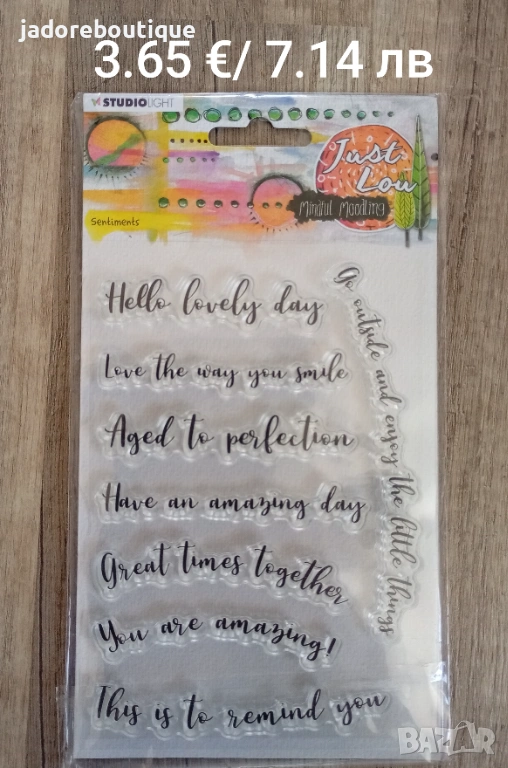 jadoreboutique
3.65 €/ 7.14 лв
STUDIOLIGHT
Just Lou
Mindful Moodling
Sentiments
Hello lovely day
Love the way you smile
Aged to perfection
Have an amazing day
Great times together
You are amazing!
This is to remind you
Go outside and enjoy the little things
BAZAR